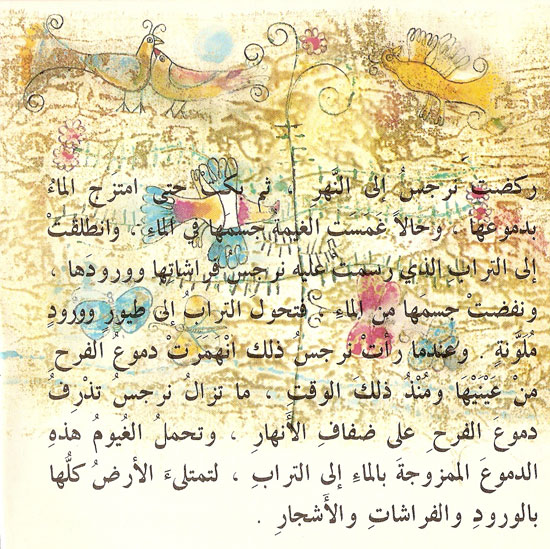 ركضتْ نرجسُ إلى النَّهرِ . ثم بكتْ حتى امتزجَ الماءُ
بدموعها ، وحالاً غمستْ الغيمةُ جسمها في الماءِ ، وانطلقتْ
إلى الترابِ الذي رسمتْ عليه نرجسُ فراشاتِها وورودَها ،
ونفضتْ جسمَها من الماءِ . فتحول الترابُ إلى طيورٍ وورودٍ
مُلَوَّنةٍ . وعندما رأتْ نرجسُ ذلك انْهَمَرَتْ دموعُ الفرح
مِنْ عَيْنَيْهَا ومُنْذُ ذلكَ الوقتِ ، ما تزالُ نرجس تذْرِفُ
دموعَ الفرحِ على ضفافِ الأَنهارِ ، وتحملُ الغُيومُ هذهِ
الدموعَ الممزوجةَ بالماءِ إلى الترابِ ، لتمتلىءَ الأرضُ كلُّها
بالورودِ والفراشاتِ والأَشجارِ .